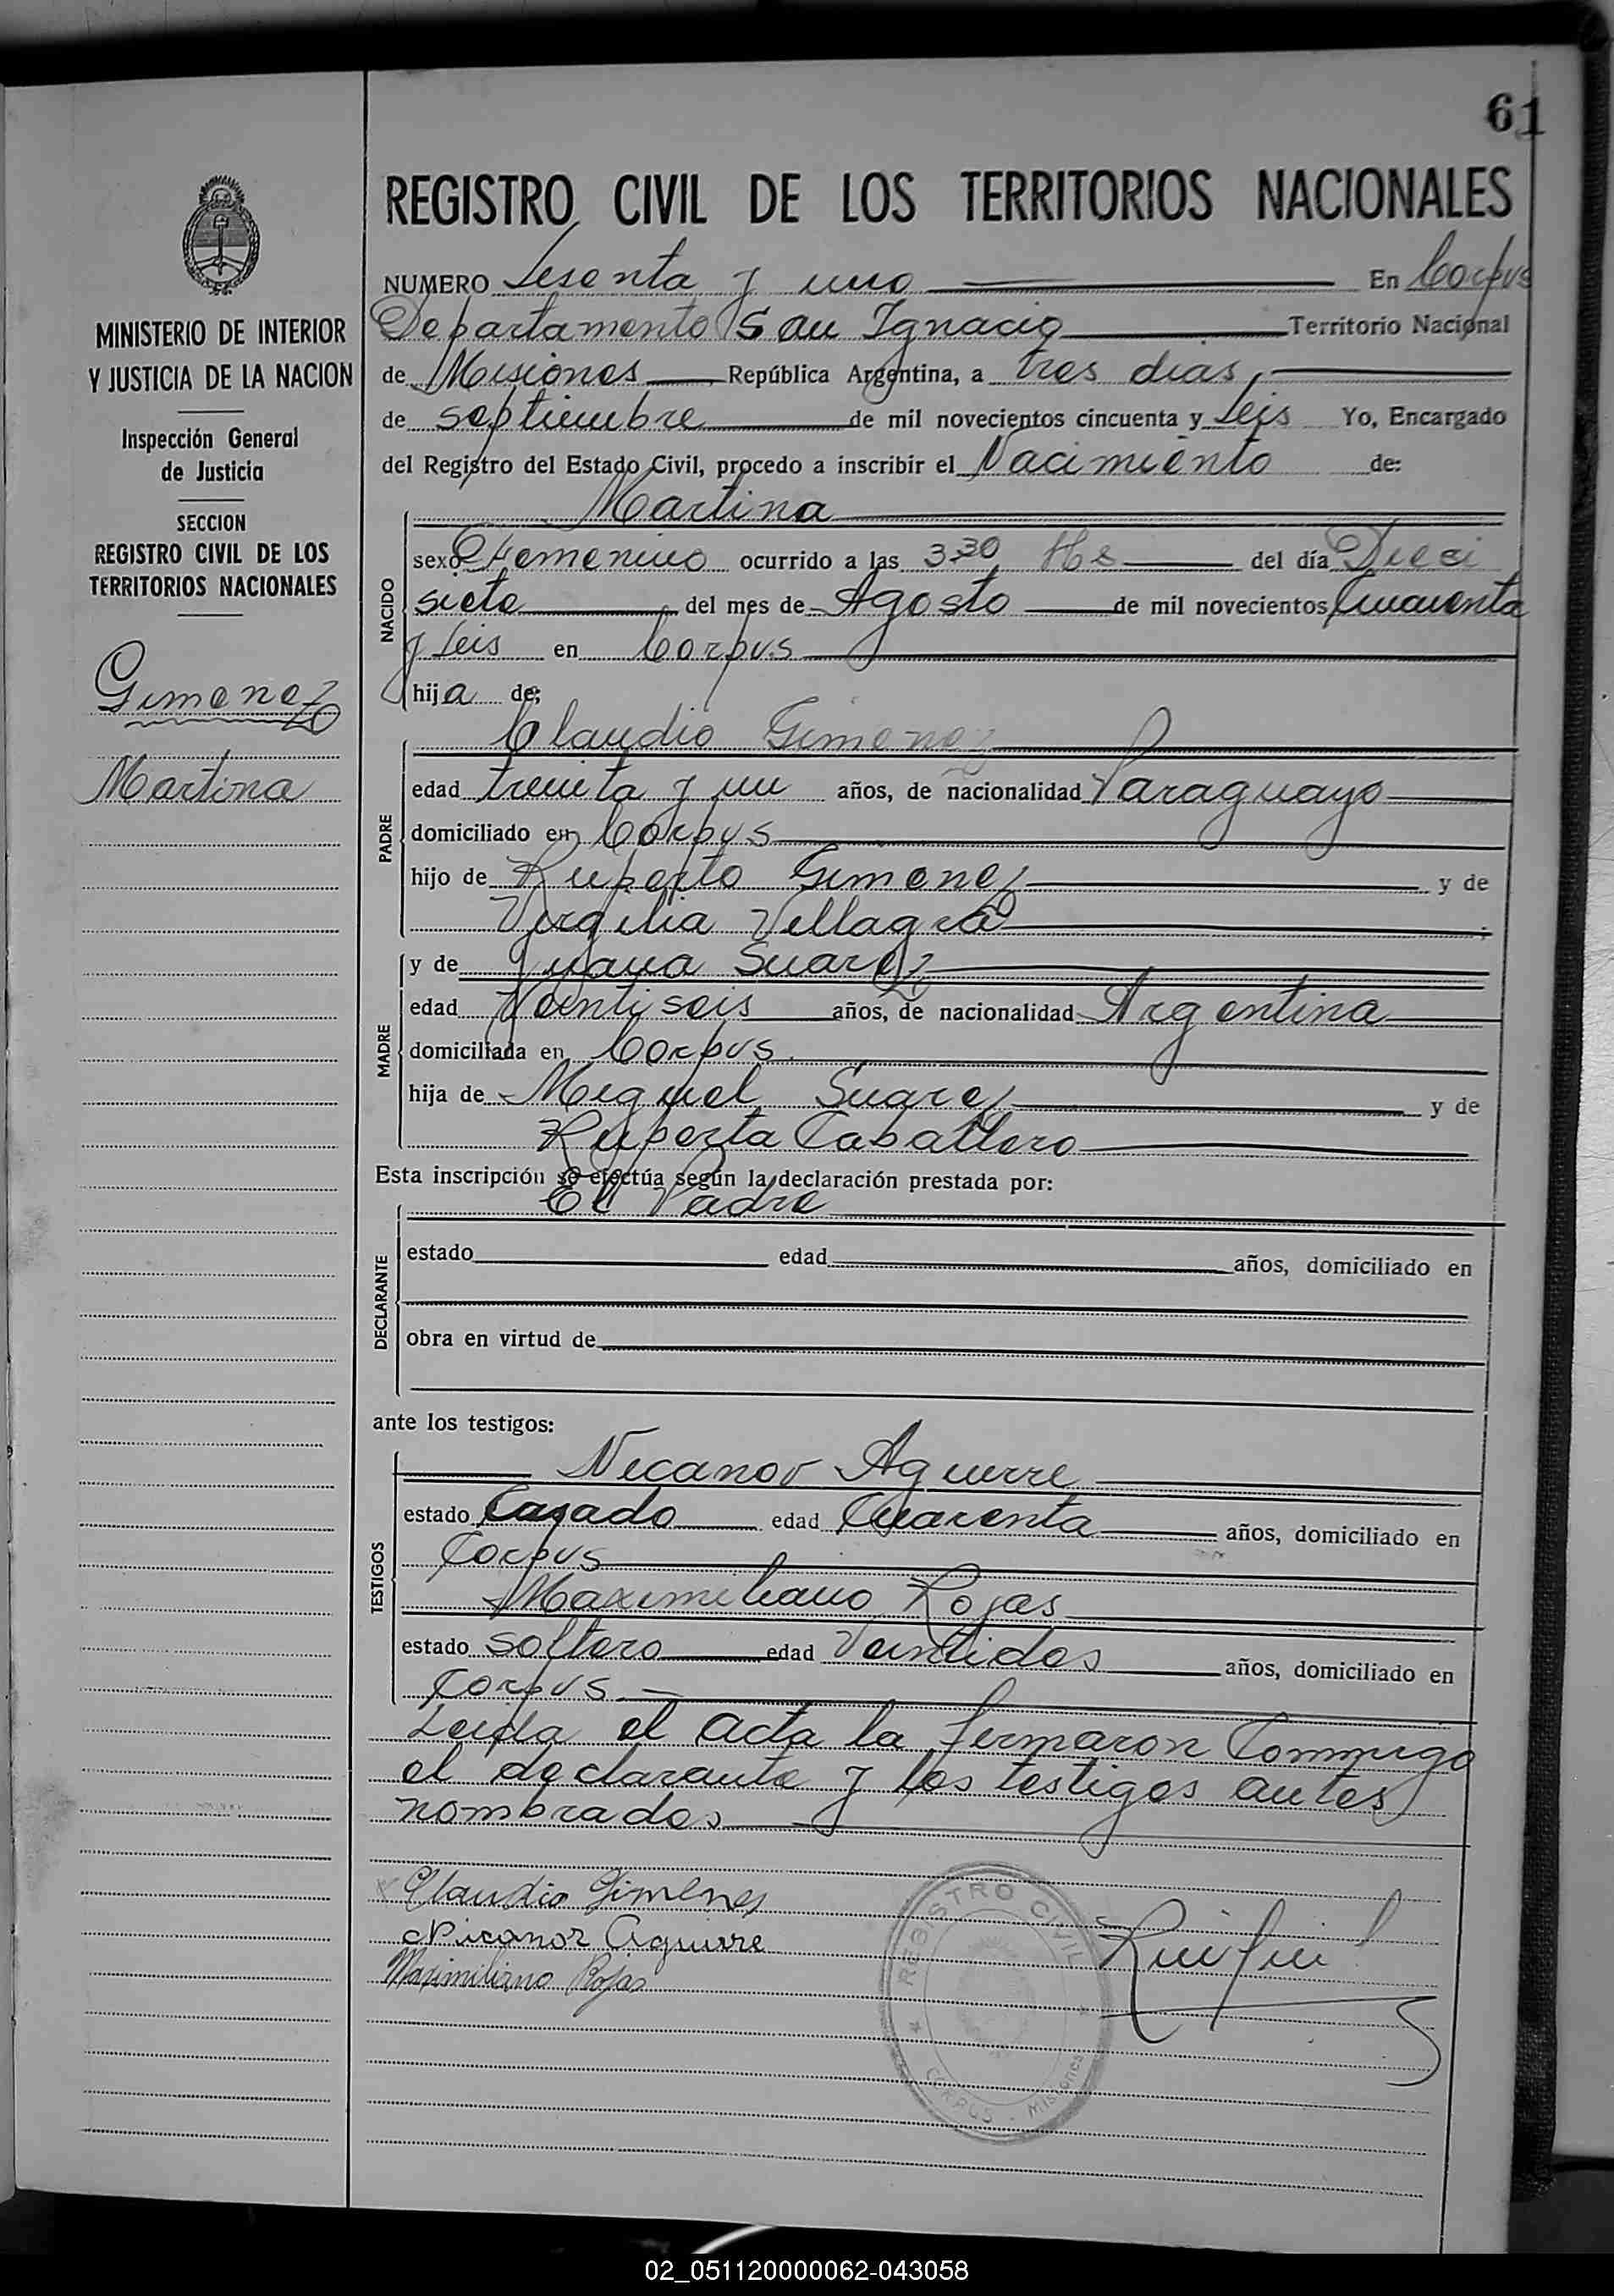 61
REGISTRO CIVIL DE LOS TERRITORIOS NACIONALES
NUMERO Sesenta y uno En Corpus
Departamento San Ignacio Territorio Nacional
de Misiones República Argentina, a tres dias
de septiembre de mil novecientos cincuenta y seis Yo, Encargado
del Registro del Estado Civil, procedo a inscribir el Nacimiento de:
Martina
sexo Femenino ocurrido a las 3.30 Hs del día Dieci
siete del mes de Agosto de mil novecientos Cuarenta
y seis en Corpus
hija de:
NACIDO
Claudio Gimenez
edad treinta y un años, de nacionalidad Paraguayo
domiciliado en Corpus
hijo de Ruperto Gimenez y de
Virgilia Villagra ;
PADRE
y de Juana Suarez
edad Veintiseis años, de nacionalidad Argentina
domiciliada en Corpus
hija de Miguel Suarez y de
Ruperta Caballero
MADRE
Esta inscripción se efectúa según la declaración prestada por:
El Padre
estado edad años, domiciliado en
obra en virtud de
DECLARANTE
ante los testigos:
Nicanor Aguirre
estado Casado edad Cuarenta años, domiciliado en
Corpus
Maximiliano Rojas
estado soltero edad Veintidos años, domiciliado en
Corpus
TESTIGOS
Leida el acta la firmaron Conmigo
el declarante y los testigos antes
nombrados
Claudio Gimenes
Nicanor Aguirre
Maximiliano Rojas
REGISTRO CIVIL
CORPUS - Misiones
MINISTERIO DE INTERIOR
Y JUSTICIA DE LA NACION
Inspección General
de Justicia
SECCION
REGISTRO CIVIL DE LOS
TERRITORIOS NACIONALES
Gimenez
Martina
02_051120000062-043058